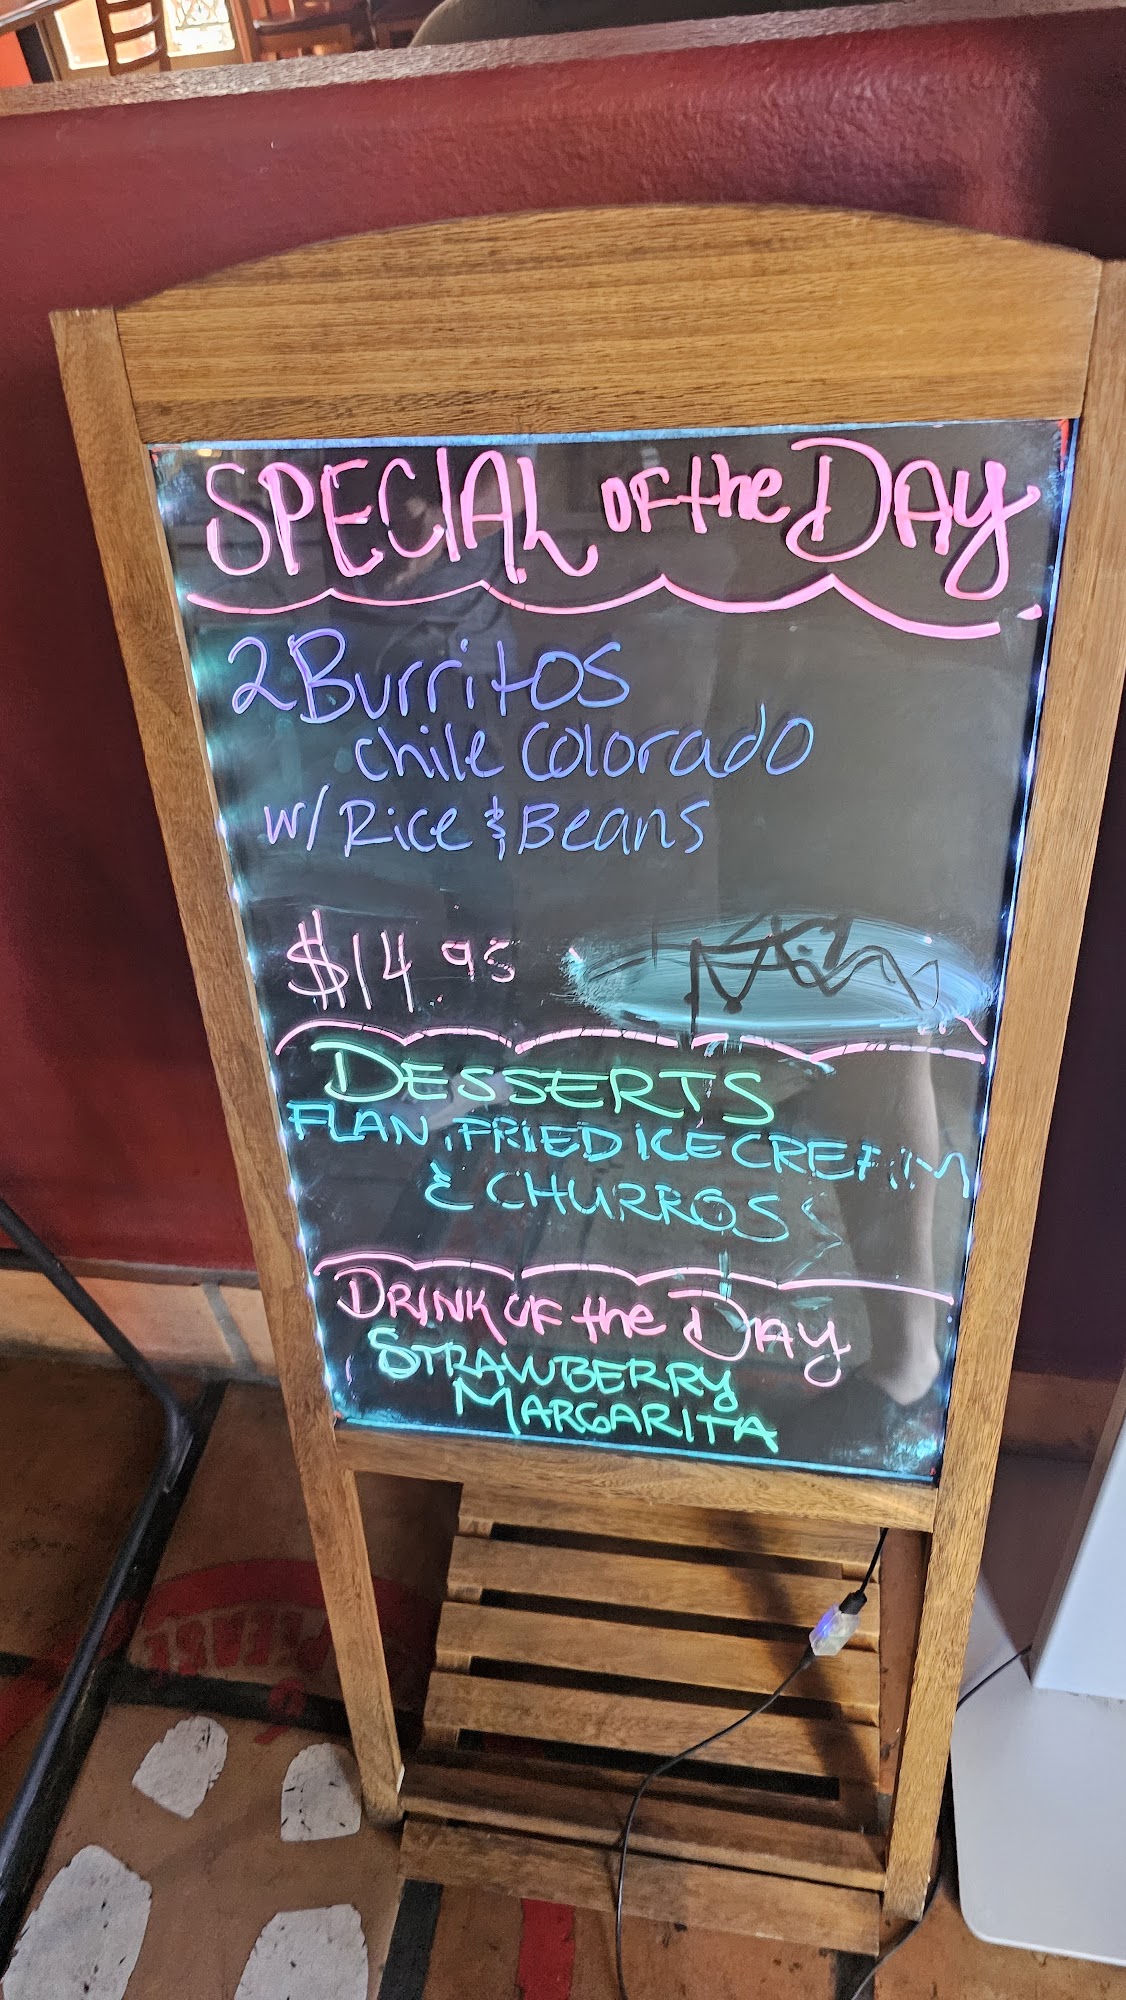 SPECIAL OF the DAY
2 Burritos
chile Colorado
w/ Rice & Beans
$14.95
DESSERTS
FLAN, FRIED ICE CREAM
& CHURROS
DRINK OF the DAY
STRAWBERRY
MARGARITA